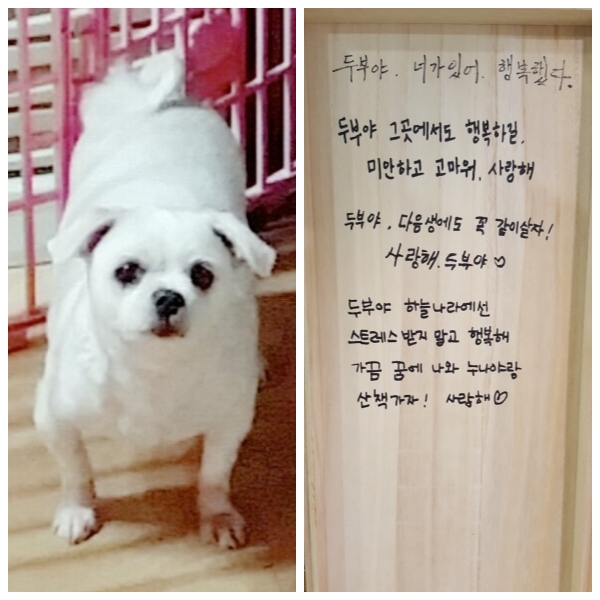 두부야. 너가있어. 행복했다.
두부야 그곳에서도 행복하길.
미안하고 고마워. 사랑해
두부야. 다음생에도 꼭 같이살자!
사랑해. 두부야♡
두부야 하늘나라에선
스트레스 받지 말고 행복해
가끔 꿈에 나와 누나야랑
산책가자! 사랑해♡